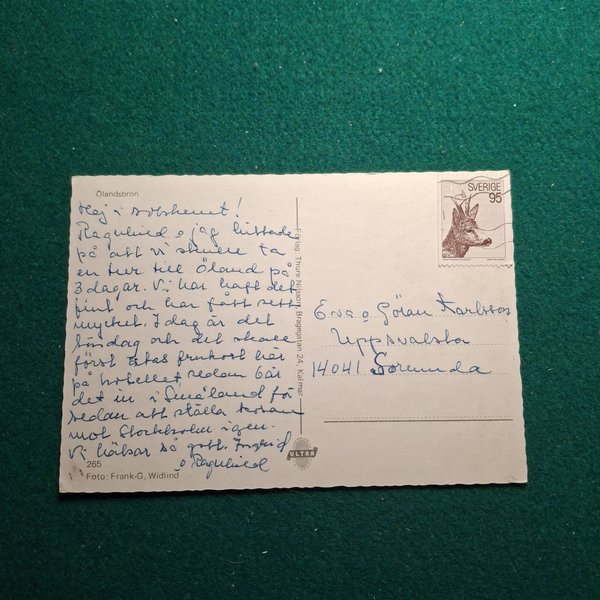 Ölandsbron
Hej i solskenet!
Ragnhild o jag hittade
på att vi skulle ta
en tur till Öland på
3 dagar. Vi har haft det
fint och har fått sett
mycket. Idag är det
lördag och det skall
först ätas frukost här
på hotellet, sedan bär
det in i Småland för
sedan att ställa kosan
mot Stockholm igen.
Vi hälsar så gott. Ingrid
o Ragnhild
265
Foto: Frank-G. Widlind
Förlag: Thure Nilsson, Bragegatan 24, Kalmar
ULTRA
SVERIGE
95
Eva o Göran Karlsson
14041 Sorunda